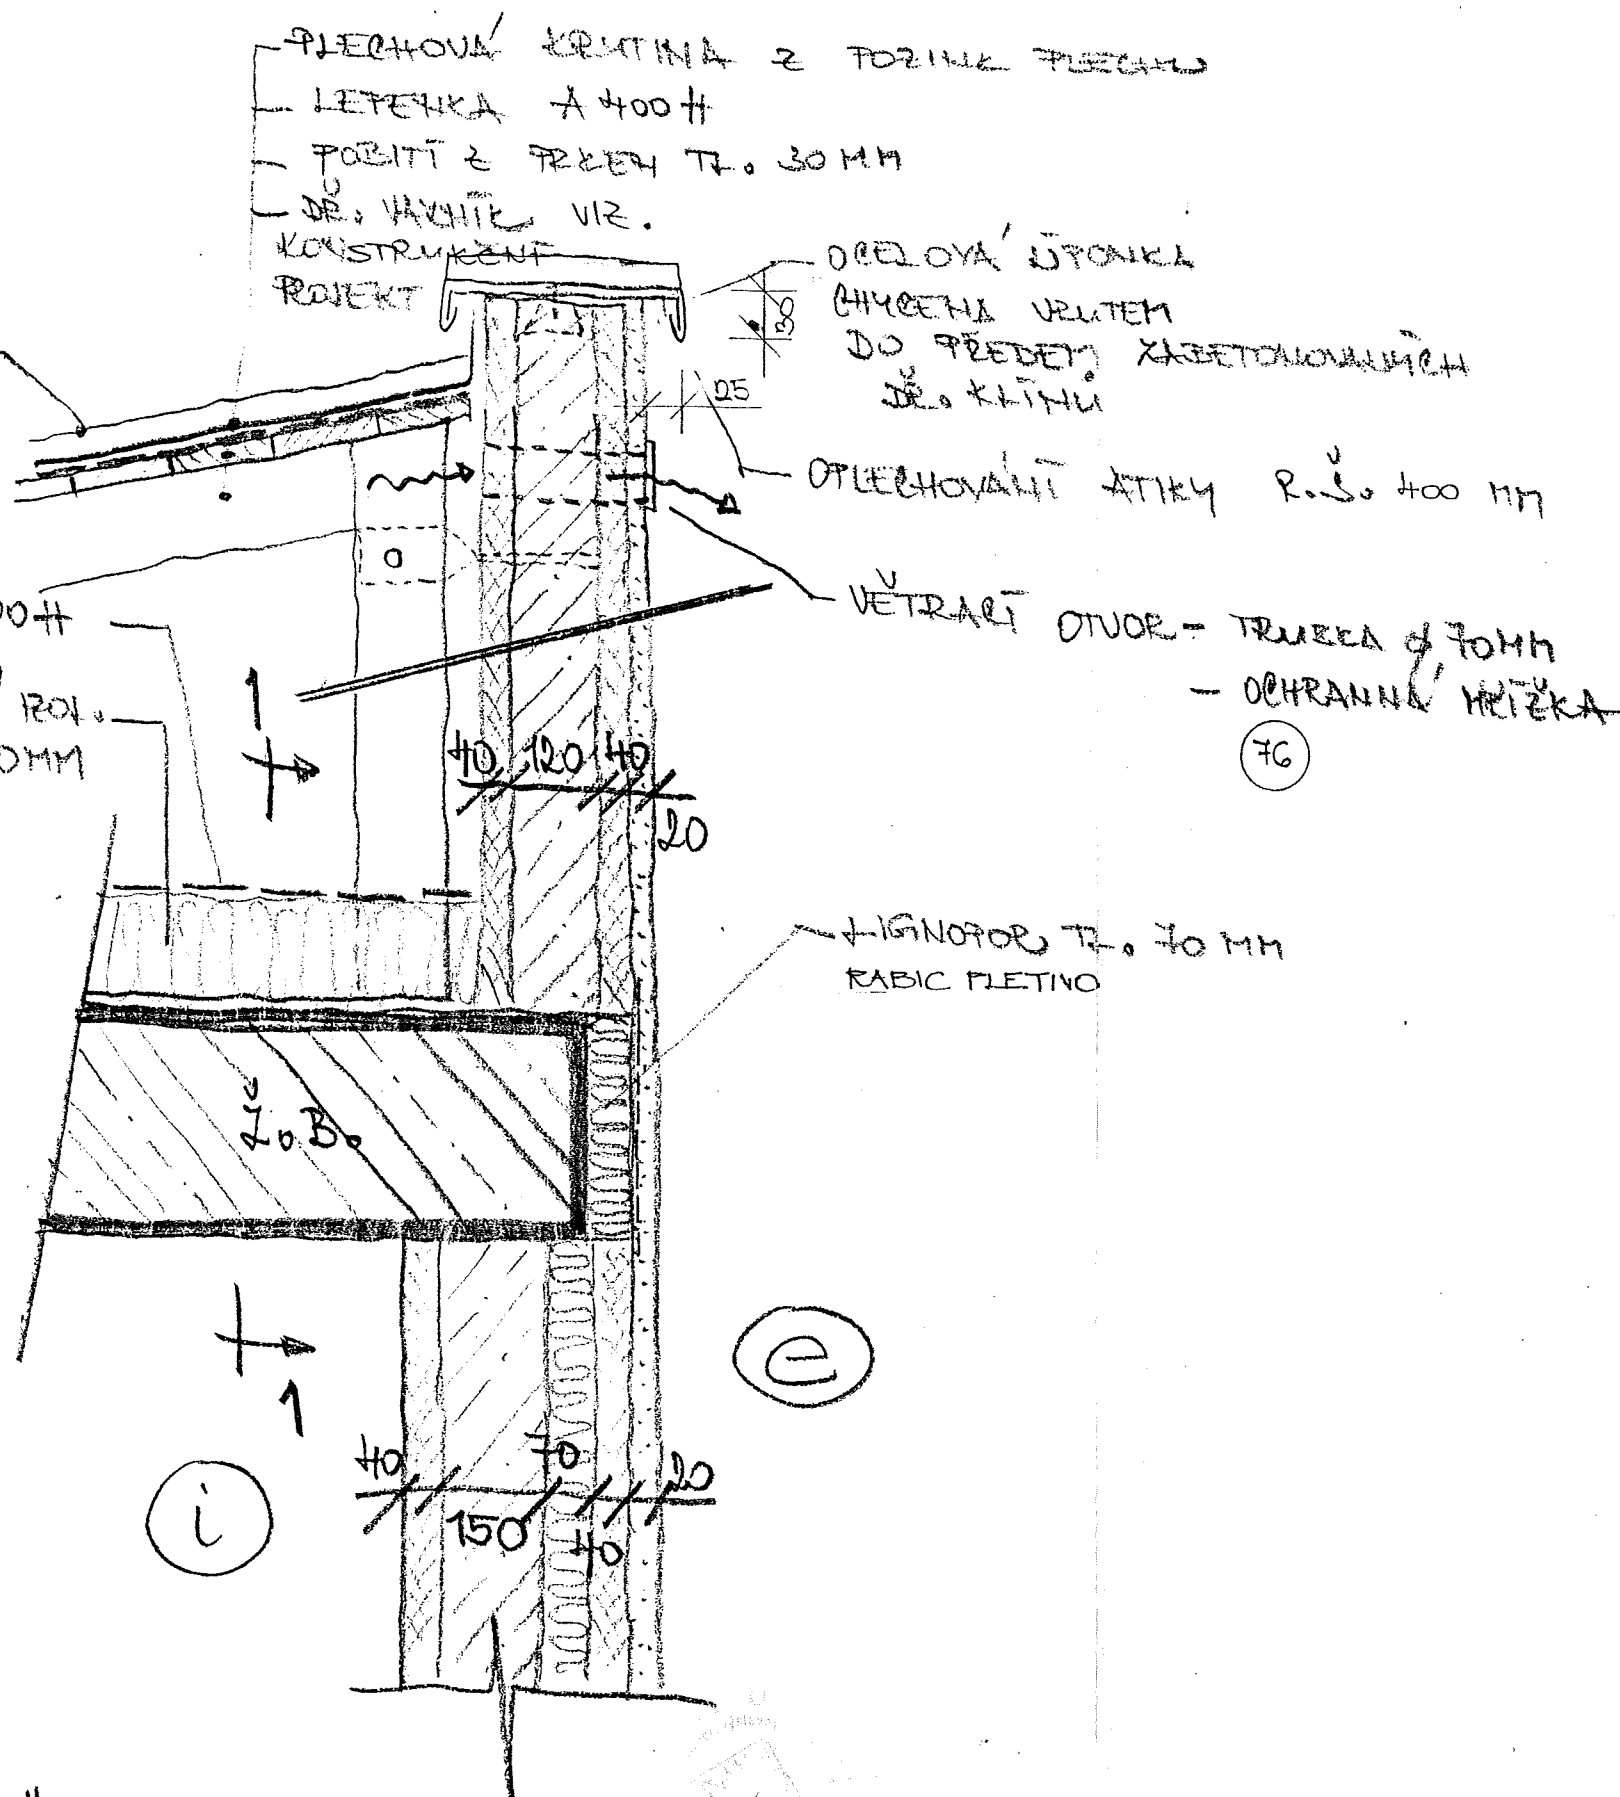 PLECHOVÁ KRYTINA Z POZINK PLECHU
LEPENKA A 400 H
POBITÍ Z PRKEN TL. 30 MM
DŘ. VAZNÍK VIZ.
KONSTRUKČNÍ
PROJEKT
OCELOVÁ SPONKA
CHYCENA VRUTEM
DO PŘEDEM ZABETONOVANÝCH
DŘ. KLÍNŮ
30
25
OPLECHOVÁNÍ ATIKY R.Š. 400 MM
VĚTRACÍ OTVOR - TRUBKA Ø 70MM
- OCHRANNÁ MŘÍŽKA
76
00H
IZOL.
0MM
1
40 120 40
20
LIGNOPOR TL. 70 MM
RABIC PLETIVO
Ž.B.
e
1
i
40 70 20
150 40